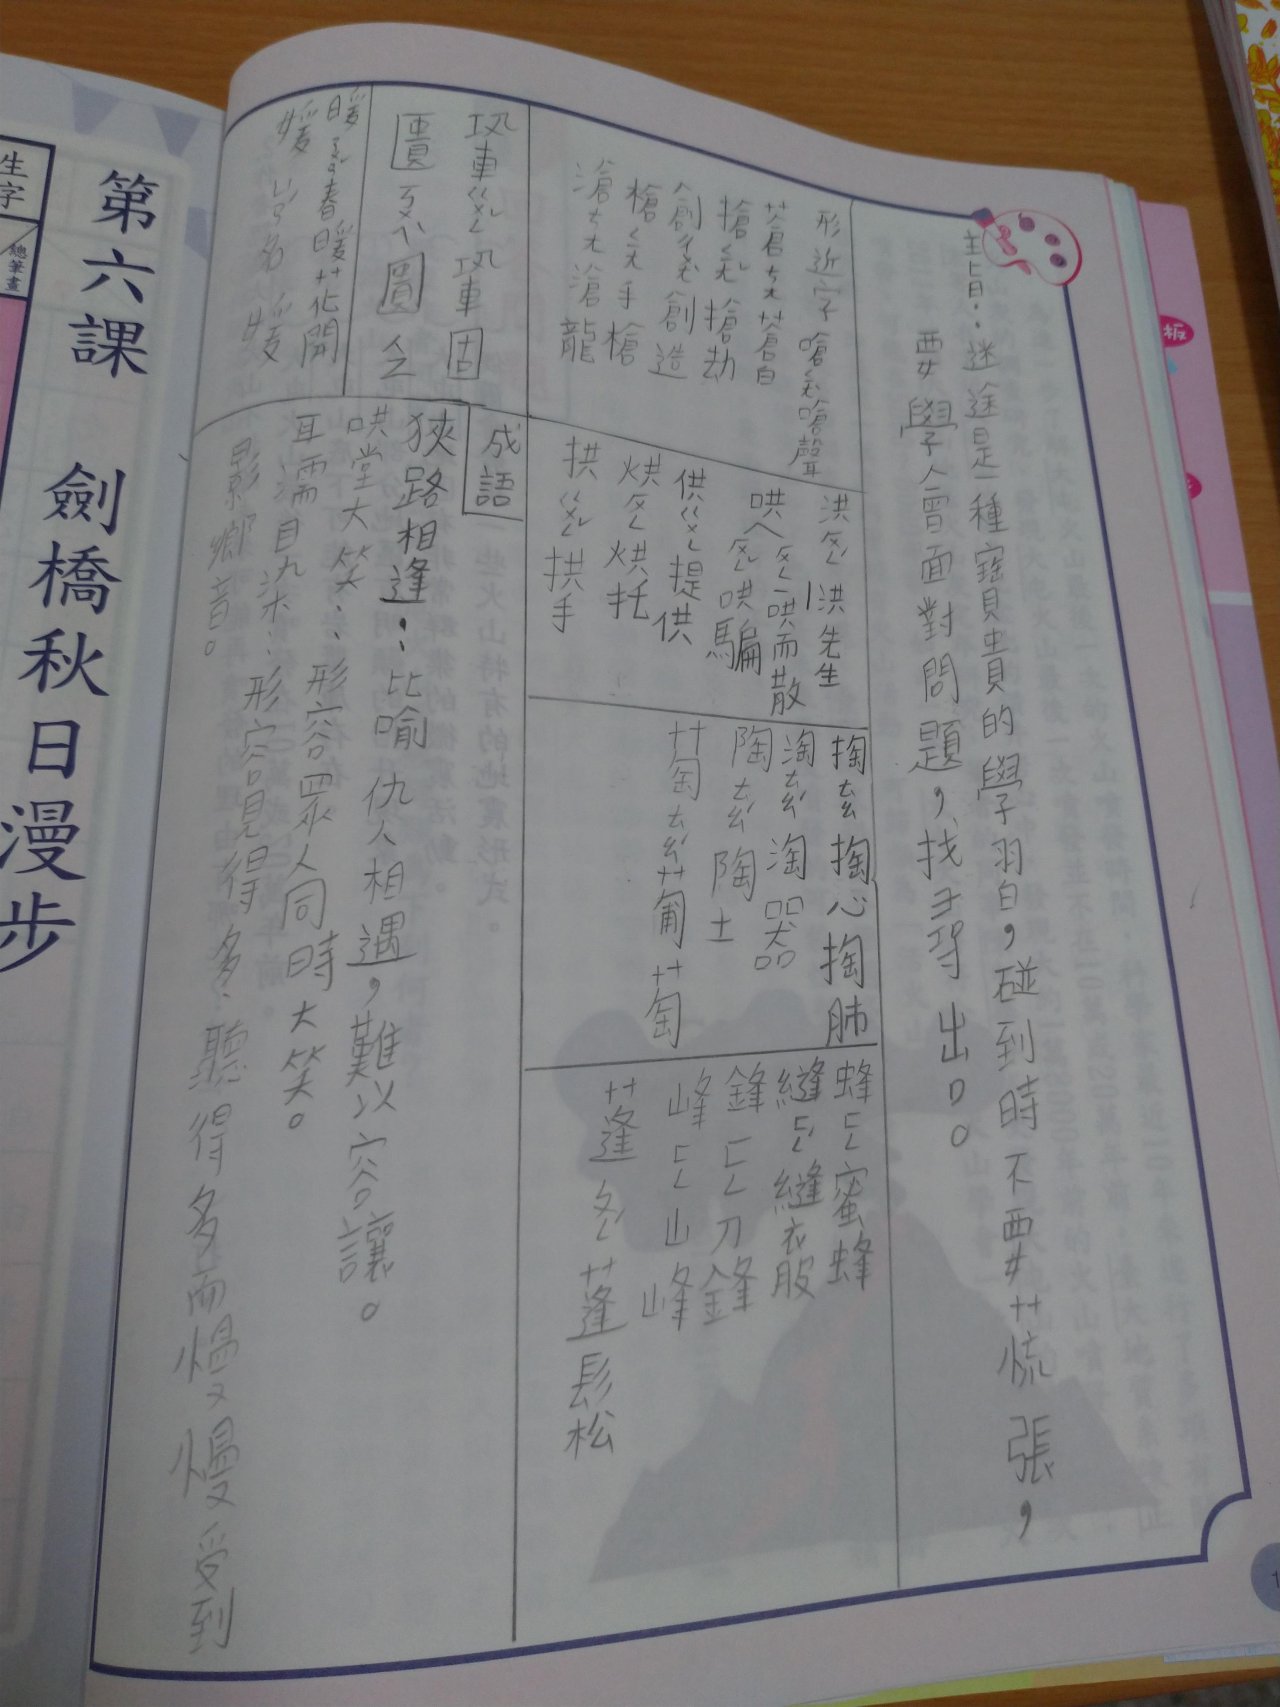 主旨：迷途是一種寶貴的學習，碰到時不要慌張，
要學會面對問題，找尋出口。
形近字
嗆ㄑㄧㄤ嗆聲
蒼ㄘㄤ蒼白
搶ㄑㄧㄤˇ搶劫
創ㄔㄨㄤˋ創造
槍ㄑㄧㄤ手槍
滄ㄘㄤ滄龍
洪ㄏㄨㄥˊ洪先生
哄ㄏㄨㄥ一哄而散
哄ㄏㄨㄥˇ哄騙
供ㄍㄨㄥ提供
烘ㄏㄨㄥ烘托
拱ㄍㄨㄥˇ拱手
掏ㄊㄠ掏心掏肺
淘ㄊㄠˊ淘器
陶ㄊㄠˊ陶土
萄ㄊㄠˊ葡萄
蜂ㄈㄥ蜜蜂
縫ㄈㄥˊ縫衣服
鋒ㄈㄥ刀鋒
峰ㄈㄥ山峰
蓬ㄆㄥˊ蓬鬆
成語
狹路相逢：比喻仇人相遇，難以容讓。
哄堂大笑：形容眾人同時大笑。
耳濡目染：形容見得多．聽得多而慢慢受到
影響。
暖ㄋㄨㄢˇ春暖花開
生字
總筆畫
第六課 劍橋秋日漫步